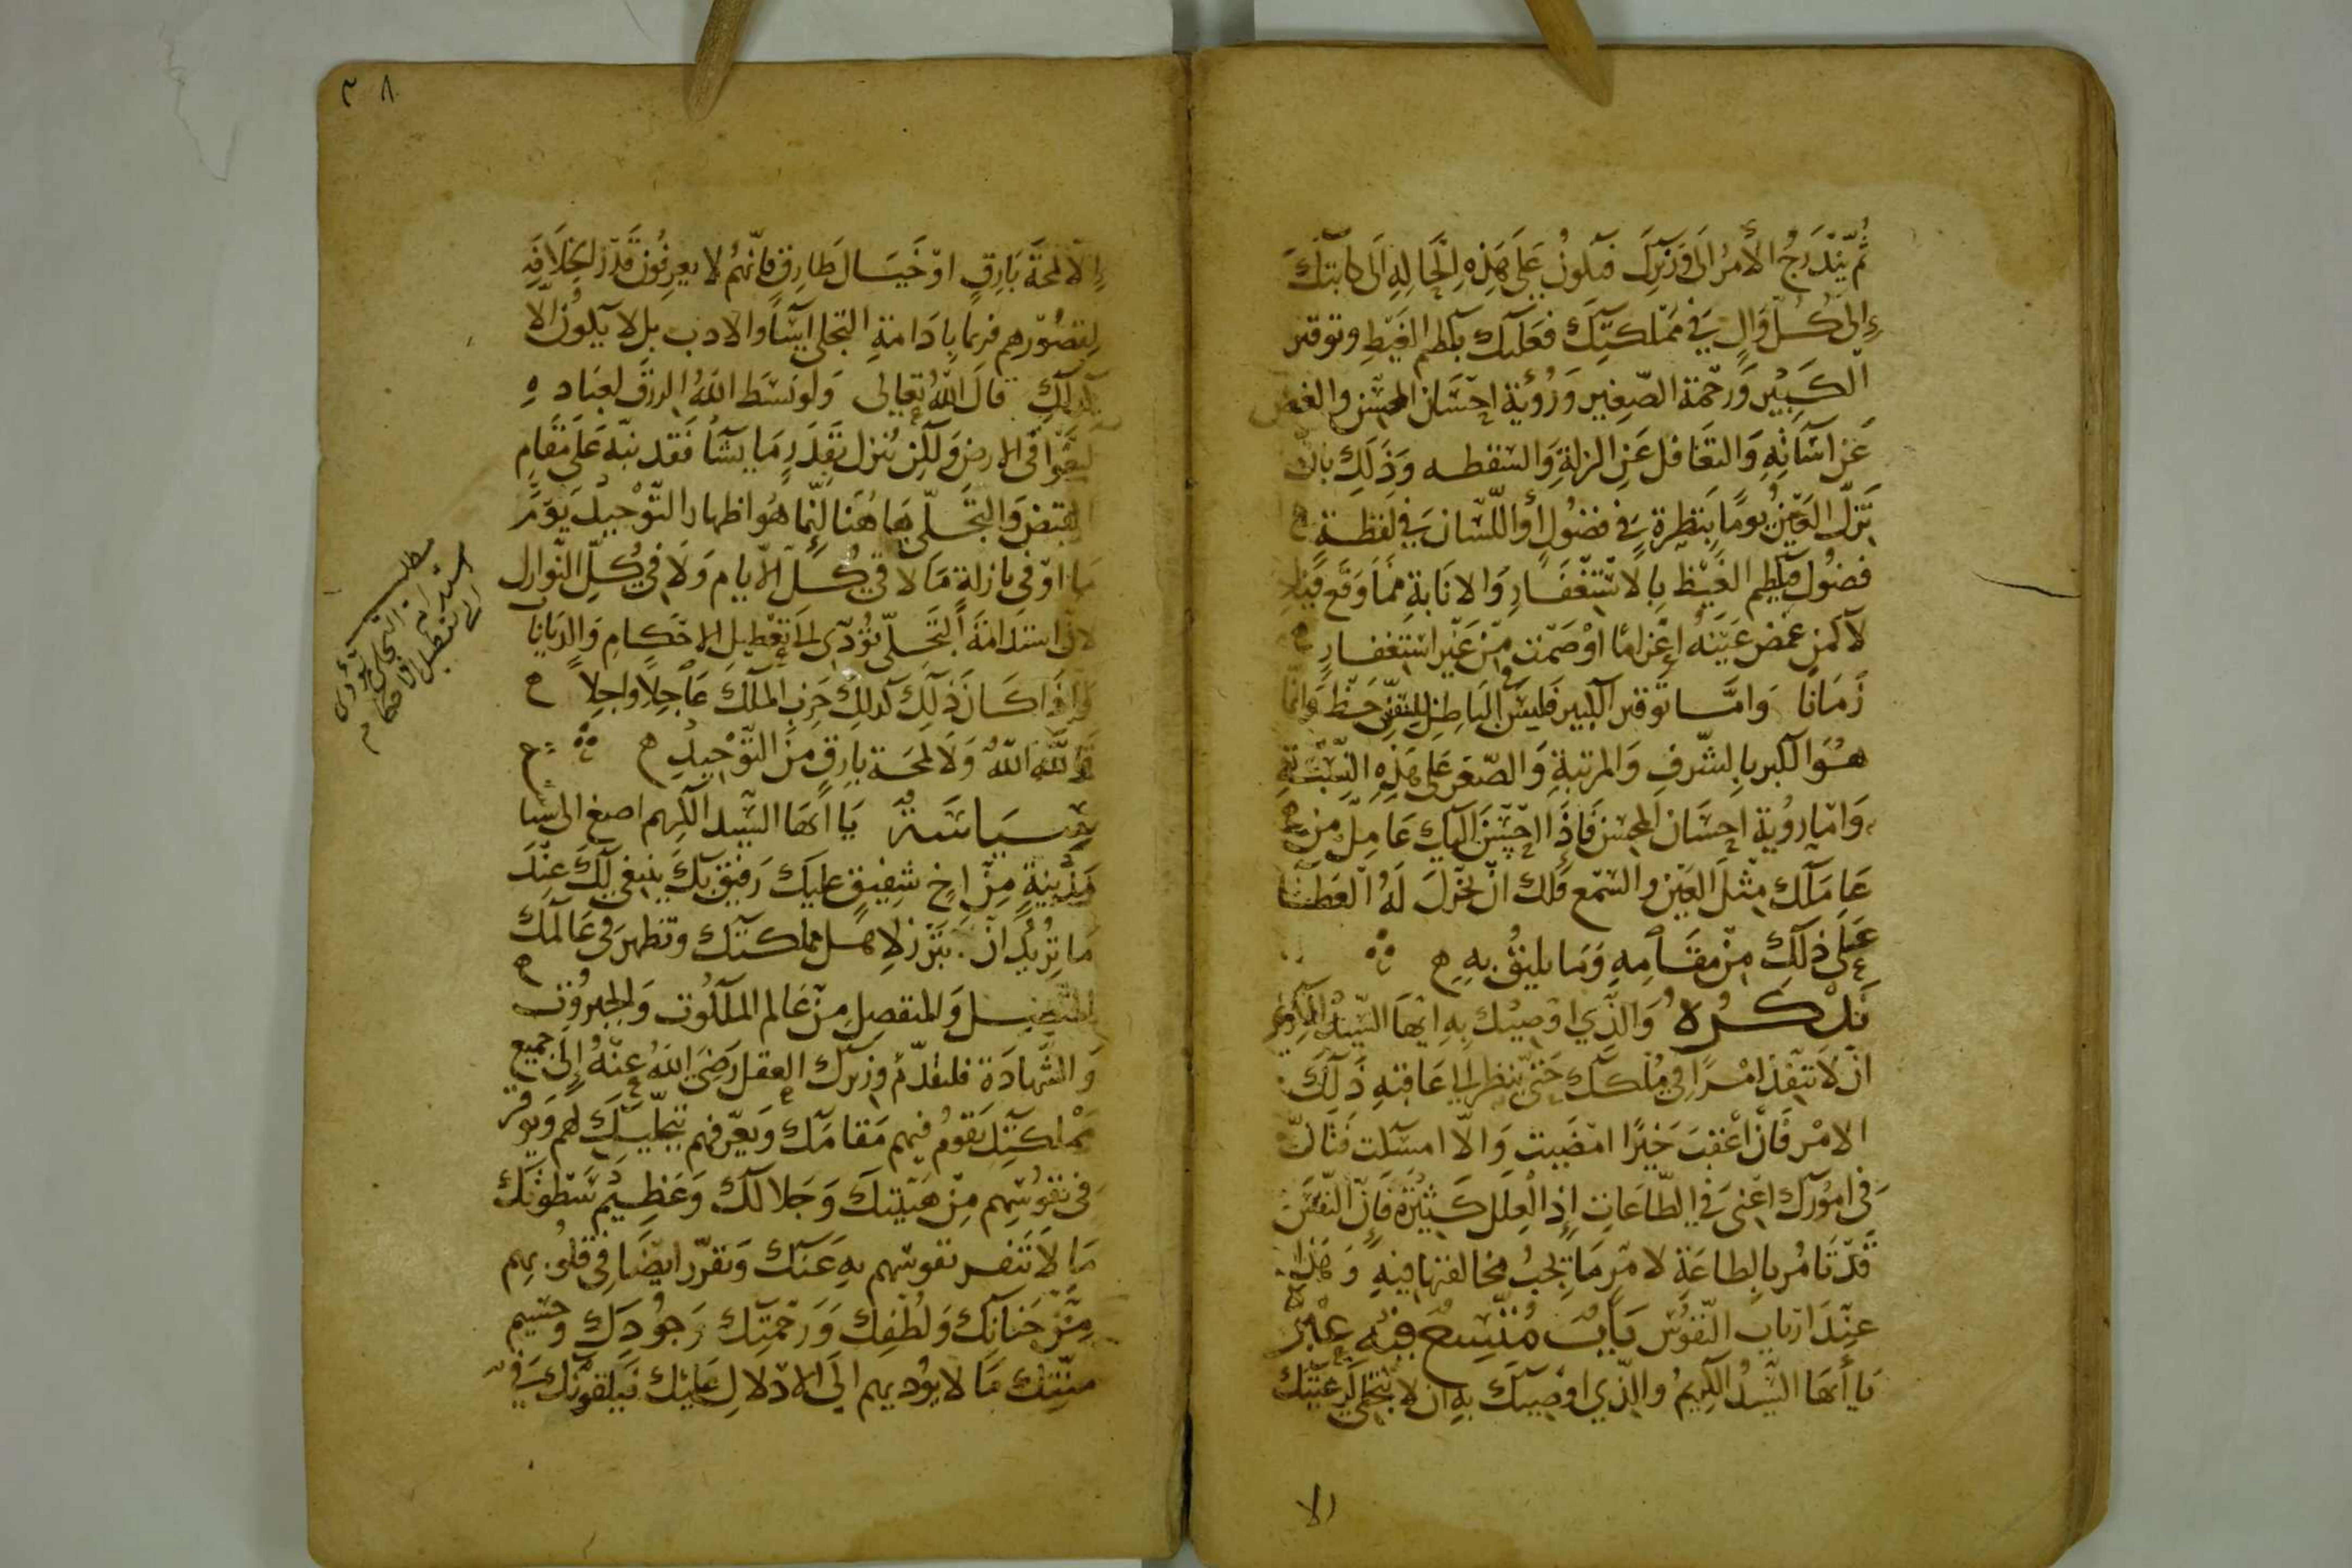 ثُمَّ يَنْدَرِجُ الأَمْرُ الَى وَزيرِكَ فيَكونُ عَلَى هَذِهِ الحَالِهِ الَى كاتبكَ
إِلىَ كُلِّ وَالٍ فِي مَمْلكتِكَ فعَليْك بكظم الغَيْظِ وتوقير
الكَبِيْر وَرَحْمَة الصَّغِير وَرُؤْية احْسَان المحسن والغض
عَن اسَآئَتِهِ وَالتغَافل عَنِ الزلةِ وَالسقطه وَذَلِك بان
تَزلّ العَيْن يومًا بِنَظرة فِي فضُول أو اللّسَان فِي لفظة
فضُول فيكظم الغَيْظ بِالاسْتغْفَارِ وَالانَابَةِ ممَا وَقَع فيه
لا كمن غمض عَيْنَهُ اغرامًا اوْ صَمْت مِنْ غَيْر اسْتغفَارِ
زَمَانًا وَامَّا توقير الكبير فليسَ في البَاطِن للسِّن حَظ وَانّما
هُوَ الكبر بِالشّرفِ وَالمرتبةِ وَالصّغر عَلى هَذِهِ النِّسْبَةِ
وَامّا رؤية احسَان المحسن فَاذَا احْسَنَ اليك عَامِل من
عَامَلَك مِثْل العَيْن والسَّمع فَلك انْ تخول لَهُ العَطَا
عَلَى ذلك مِنْ مَقَامِهِ وَمَا يليقُ بِهِ
تَذْكرَةٌ وَالّذِي اوصيْك بِهِ ايّهَا السّيّد الكريم
ان لاَ تنفذ امْرًا فِي مُلْكك حَتىّ تنظر الى عَاقبَةِ ذَلِكَ
الامْر فَانْ اعْقبَ خَيْرًا امْضَيت وَالّا امسَكت فَان
فى امُورك اعْنى فِي الطّاعَات إِذ العِلل كَثِيْرَة فَإنّ النَّفسَ
قَدْ تَأمُر بالطاعَةِ لامْرٍ مَا تجِبُ مخالفتها فِيهِ وَهَذا
عِنْدَ ارْبَاب النّفوس بَابٌ مُتّسِعٌ فِيْهِ عِبْر
يَا أيّهَا السّيّدُ الكَرِيمُ والذّي اوصِيكَ بِهِ ان لا تتجَلى لِرَعيّتِك
الا
٣٨
إِلّا لمحَة بَارِقٍ اوْ خَيَال طَارِقٍ فَانّهُم لا يعرِفُون قَدْرَ الخِلَافَةِ
لِقصُوْرهم فربما بِادَامةِ التجلي اسَآؤا الادب بل لا يَكونُ الّا
كذلك قالَ اللهُ تعالى وَلوْ بسَطَ اللهُ الرزق لعِبَادِهِ
لَبَغَوْا فى الارضِ وَلكِن يُنزل بقَدَرٍ مَا يشَآءُ فَقد نبّه عَلَى مَقَامِ
القبض وَالتجَلّي هَا هُنَا إِنّمَا هُوَ اظهار التَّوْحِيْد يَوْمًا
مَا اوْ فى نازلةٍ مَا لا في كُلّ الأيام وَلَا فِي كُلّ النّوازل
لانّ اسْتدَامَة التّجَلّي تؤدّى الى تعْطيل الاحْكامِ وَالدّيَانا
وَإذَا كانَ ذَلِكَ كذلك خَرب الملكَ عَاجِلاً واجِلاً
فَاللّه اللّه وَلَا لمحَة بارِقٍ مِنَ التّوْحِيدِ
سِيَاسَةٌ يَا ايّهَا السّيّد الكريم اصغ الى سيا
مَدَنِيّةٍ مِنْ اخٍ شفيقٍ عليك رَفيق بك ينبغي لكَ عِنْدَ
مَا تُرِيْدُ انْ تبْرُز لِاهْل مملكتك وَتظهر فى عَالَمك
المتّصل وَالمنفصل مِنْ عَالم الملكوت وَالجبرُوْت
وَالشّهَادَة فليقدّم وَزيرك العقل رَضِيَ اللهُ عَنْهُ إِلى جميع
مَمْلكتِك يَقومُ فيهم مَقامَك وَيعرّفهم بتجَلّيك لَهم وَيوقر
فى نفوسِهم مِنْ هَيْبَتك وَجَلالك وَعَظِيْم سَطوَتِك
مَا لَا تَنفر نفوسهم بهِ عَنك وَيقرّر ايْضًا فِى قلوبهم
مِنْ حَنانك وَلُطْفِك وَرَحْمَتِك وَجُودِك وَجسيم
مِنّتِك مَا لا يؤديهم الَى الادْلالِ عَليْك فَيلقونك في
مطلب
استدامة التجلي تؤدى
الى تعطيل الاحكام